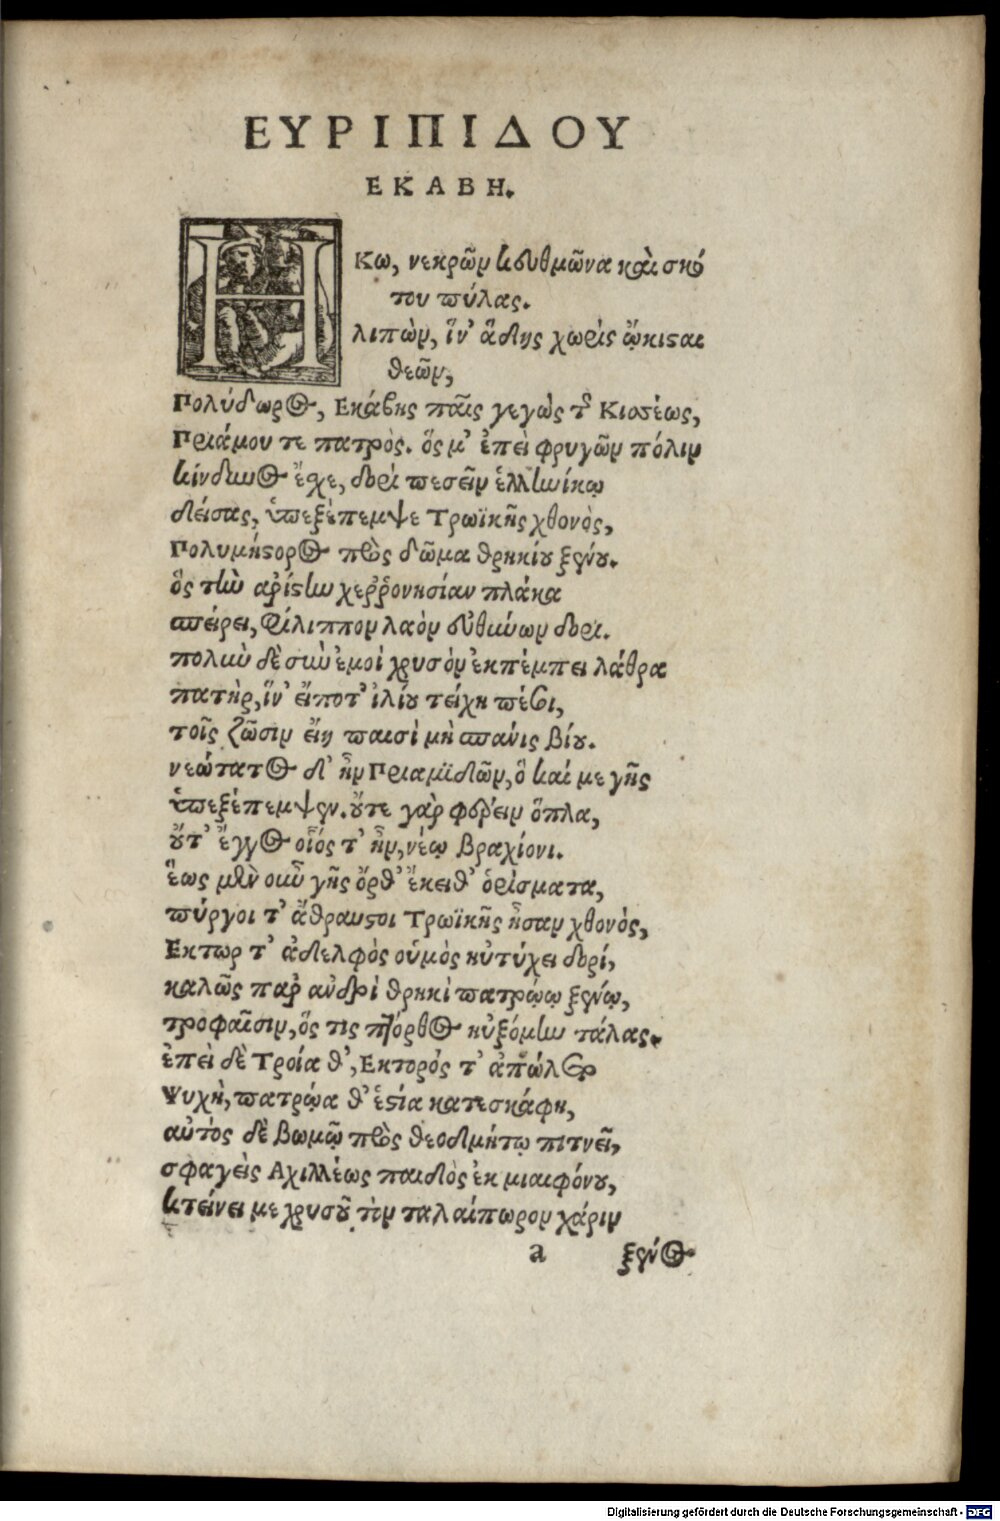 ΕΥΡΙΠΙΔΟΥ
ΕΚΑΒΗ.
ΗΚω, νεκρῶν κευθμῶνα καὶ σκό
του πύλας.
λιπὼν, ἵν' ἅδης χωρὶς ᾤκισαι
θεῶν,
Πολύδωρος, Εκάβης παῖς γεγὼς τῆς Κισέως,
Πριάμου τε πατρὸς. ὅς μ' ἐπεὶ φρυγῶν πόλιν
κίνδυνος ἔχε, δορὶ πεσεῖν ἑλληνίκῳ
δείσας, ὑπεξέπεμψε Τρωϊκῆς χθονὸς,
Πολυμήστορος πρὸς δῶμα θρηκίου ξένου.
ὃς τὴν αρίστην χεῤῥονησίαν πλάκα
σπείρει, Φίλιππον λαὸν εὐθύνων δορί.
πολὺν δὲ σὺν ἐμοὶ χρυσὸν ἐκπέμπει λάθρα
πατὴρ, ἵν' εἴποτ' ἰλίου τείχη πέσοι,
τοῖς ζῶσιν εἴη παισὶ μὴ σπάνις βίου.
νεώτατος δ' ἦν Πριαμϊδῶν, ὃ καί με γῆς
ὑπεξέπεμψεν. οὔτε γὰρ φέρειν ὅπλα,
οὔτ' ἔγχος οἷός τ' ἦν, νέῳ βραχίονι.
ἕως μὲν οὖν γῆς ὄρθ' ἔκειθ' ὁρίσματα,
πύργοι τ' ἄθραυστοι Τρωϊκῆς ἦσαν χθονὸς,
Εκτωρ τ' ἀδελφὸς οὑμὸς ηὐτύχει δορί,
καλῶς παρ' ανδρὶ θρηκὶ πατρῴῳ ξένῳ,
τροφαῖσιν, ὅς τις πτόρθος ηὐξόμην τάλας.
ἐπεὶ δὲ Τροία θ', Εκτορός τ' ἀπώλετο
Ψυχὴ, πατρῴα θ' ἑστία κατεσκάφη,
αὐτὸς δὲ βωμῷ πρὸς θεοδμήτῳ πιτνεῖ,
σφαγεὶς Αχιλλέως παιδὸς ἐκ μιαιφόνου,
κτείνει με χρυσοῦ τὸν ταλαίπωρον χάριν
a ξένος
Digitalisierung gefördert durch die Deutsche Forschungsgemeinschaft - DFG